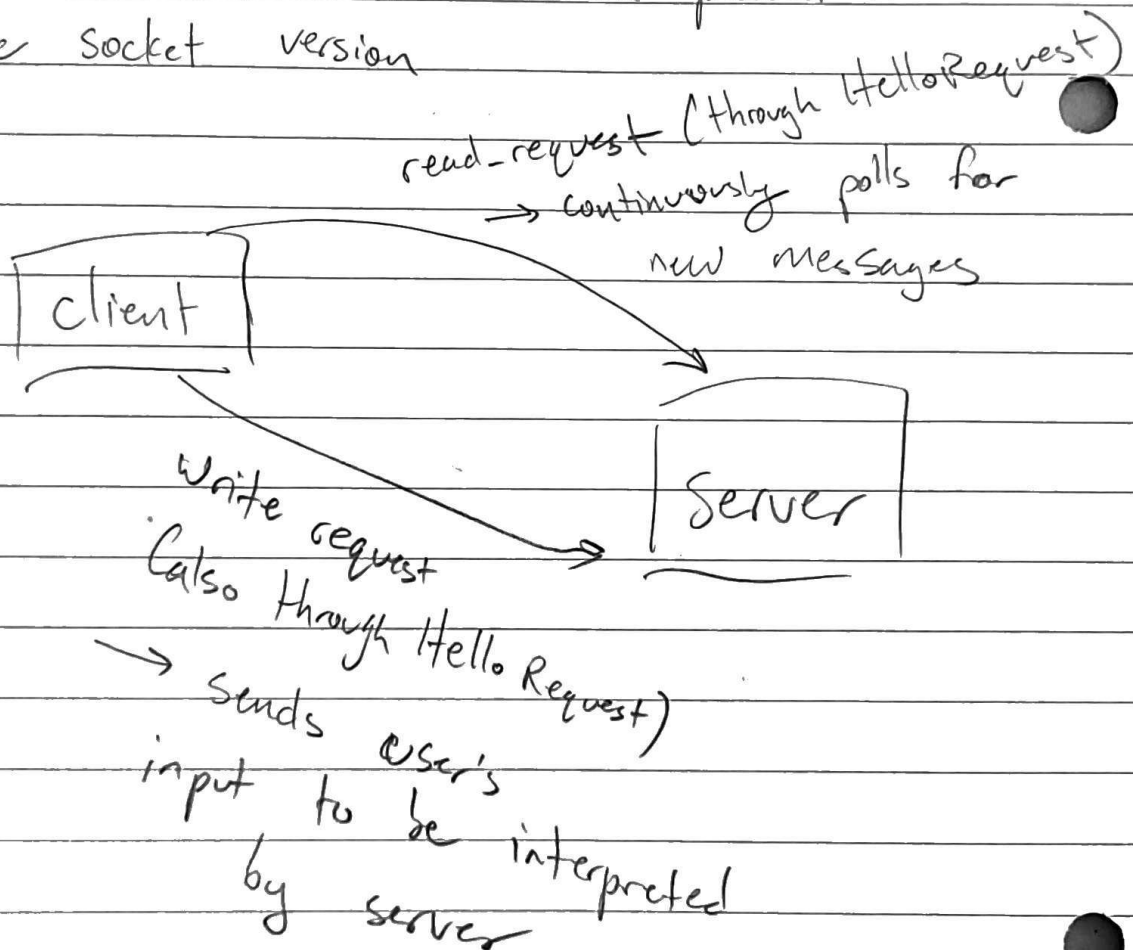 socket version
read_request (through HelloRequest)
→ continuously polls for
new messages
client
Server
write request
(also through HelloRequest)
→ sends user's
input to be interpreted
by server